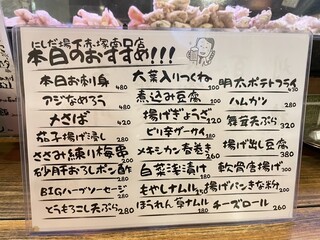 にしだ場 下赤塚南口店
本日のおすすめ!!!
本日お刺身 480
アジなめろう 480
大さば 420
茄子揚げ浸し 280
ささみ練り梅串 200
砂肝おろしポン酢 280
BIGハーブソーセージ 280
とうもろこし天ぷら 380
大葉入りつくね 200
煮込み豆腐 200
揚げぎょうざ 290
ピリ辛グーサイ
メキシカン春巻き 260
白菜浅漬け 280
もやしナムル 180
ほうれん草ナムル 180
明太ポテトフライ 430
ハムカツ 280
舞茸天ぷら 320
揚げ出し豆腐 380
軟骨唐揚げ 300
揚げパンきな粉 200
チーズロール 260